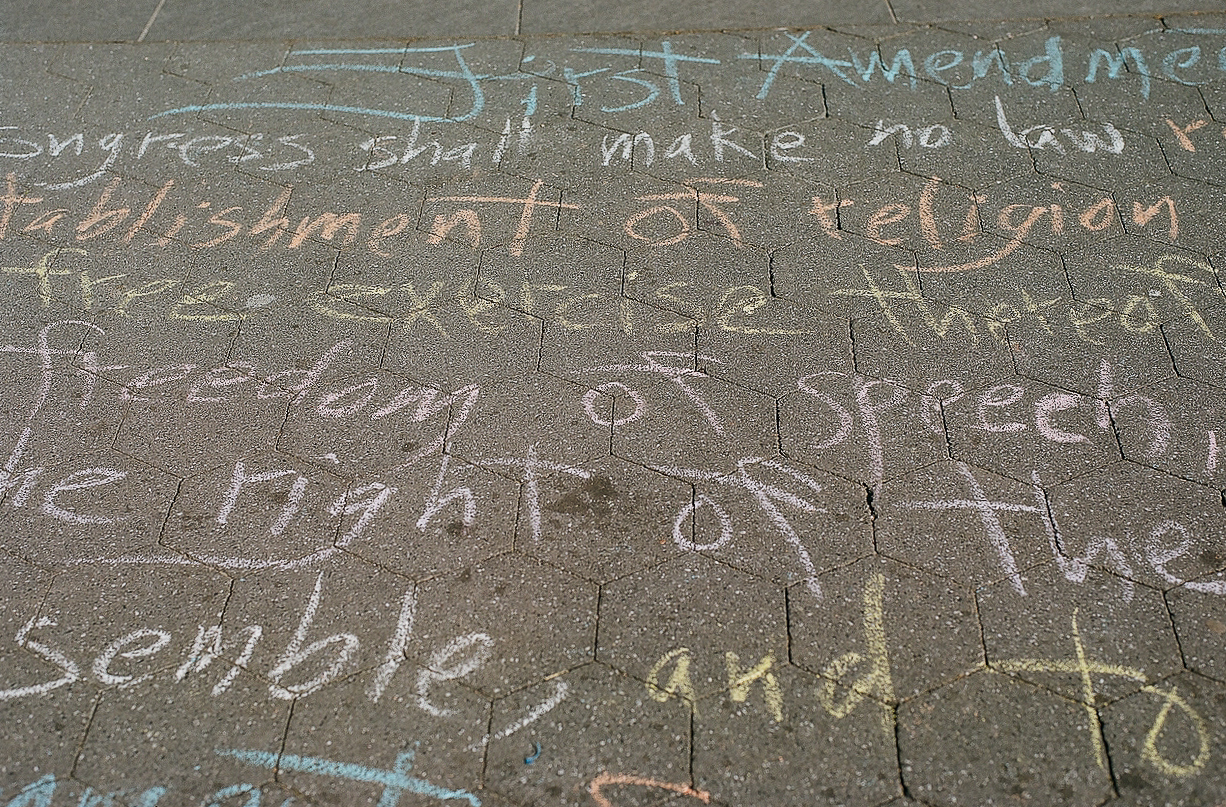 First Amendme
Congress shall make no law r
tablishment of religion
free exercise thereof
freedom of speech,
he right of the
semble, and to